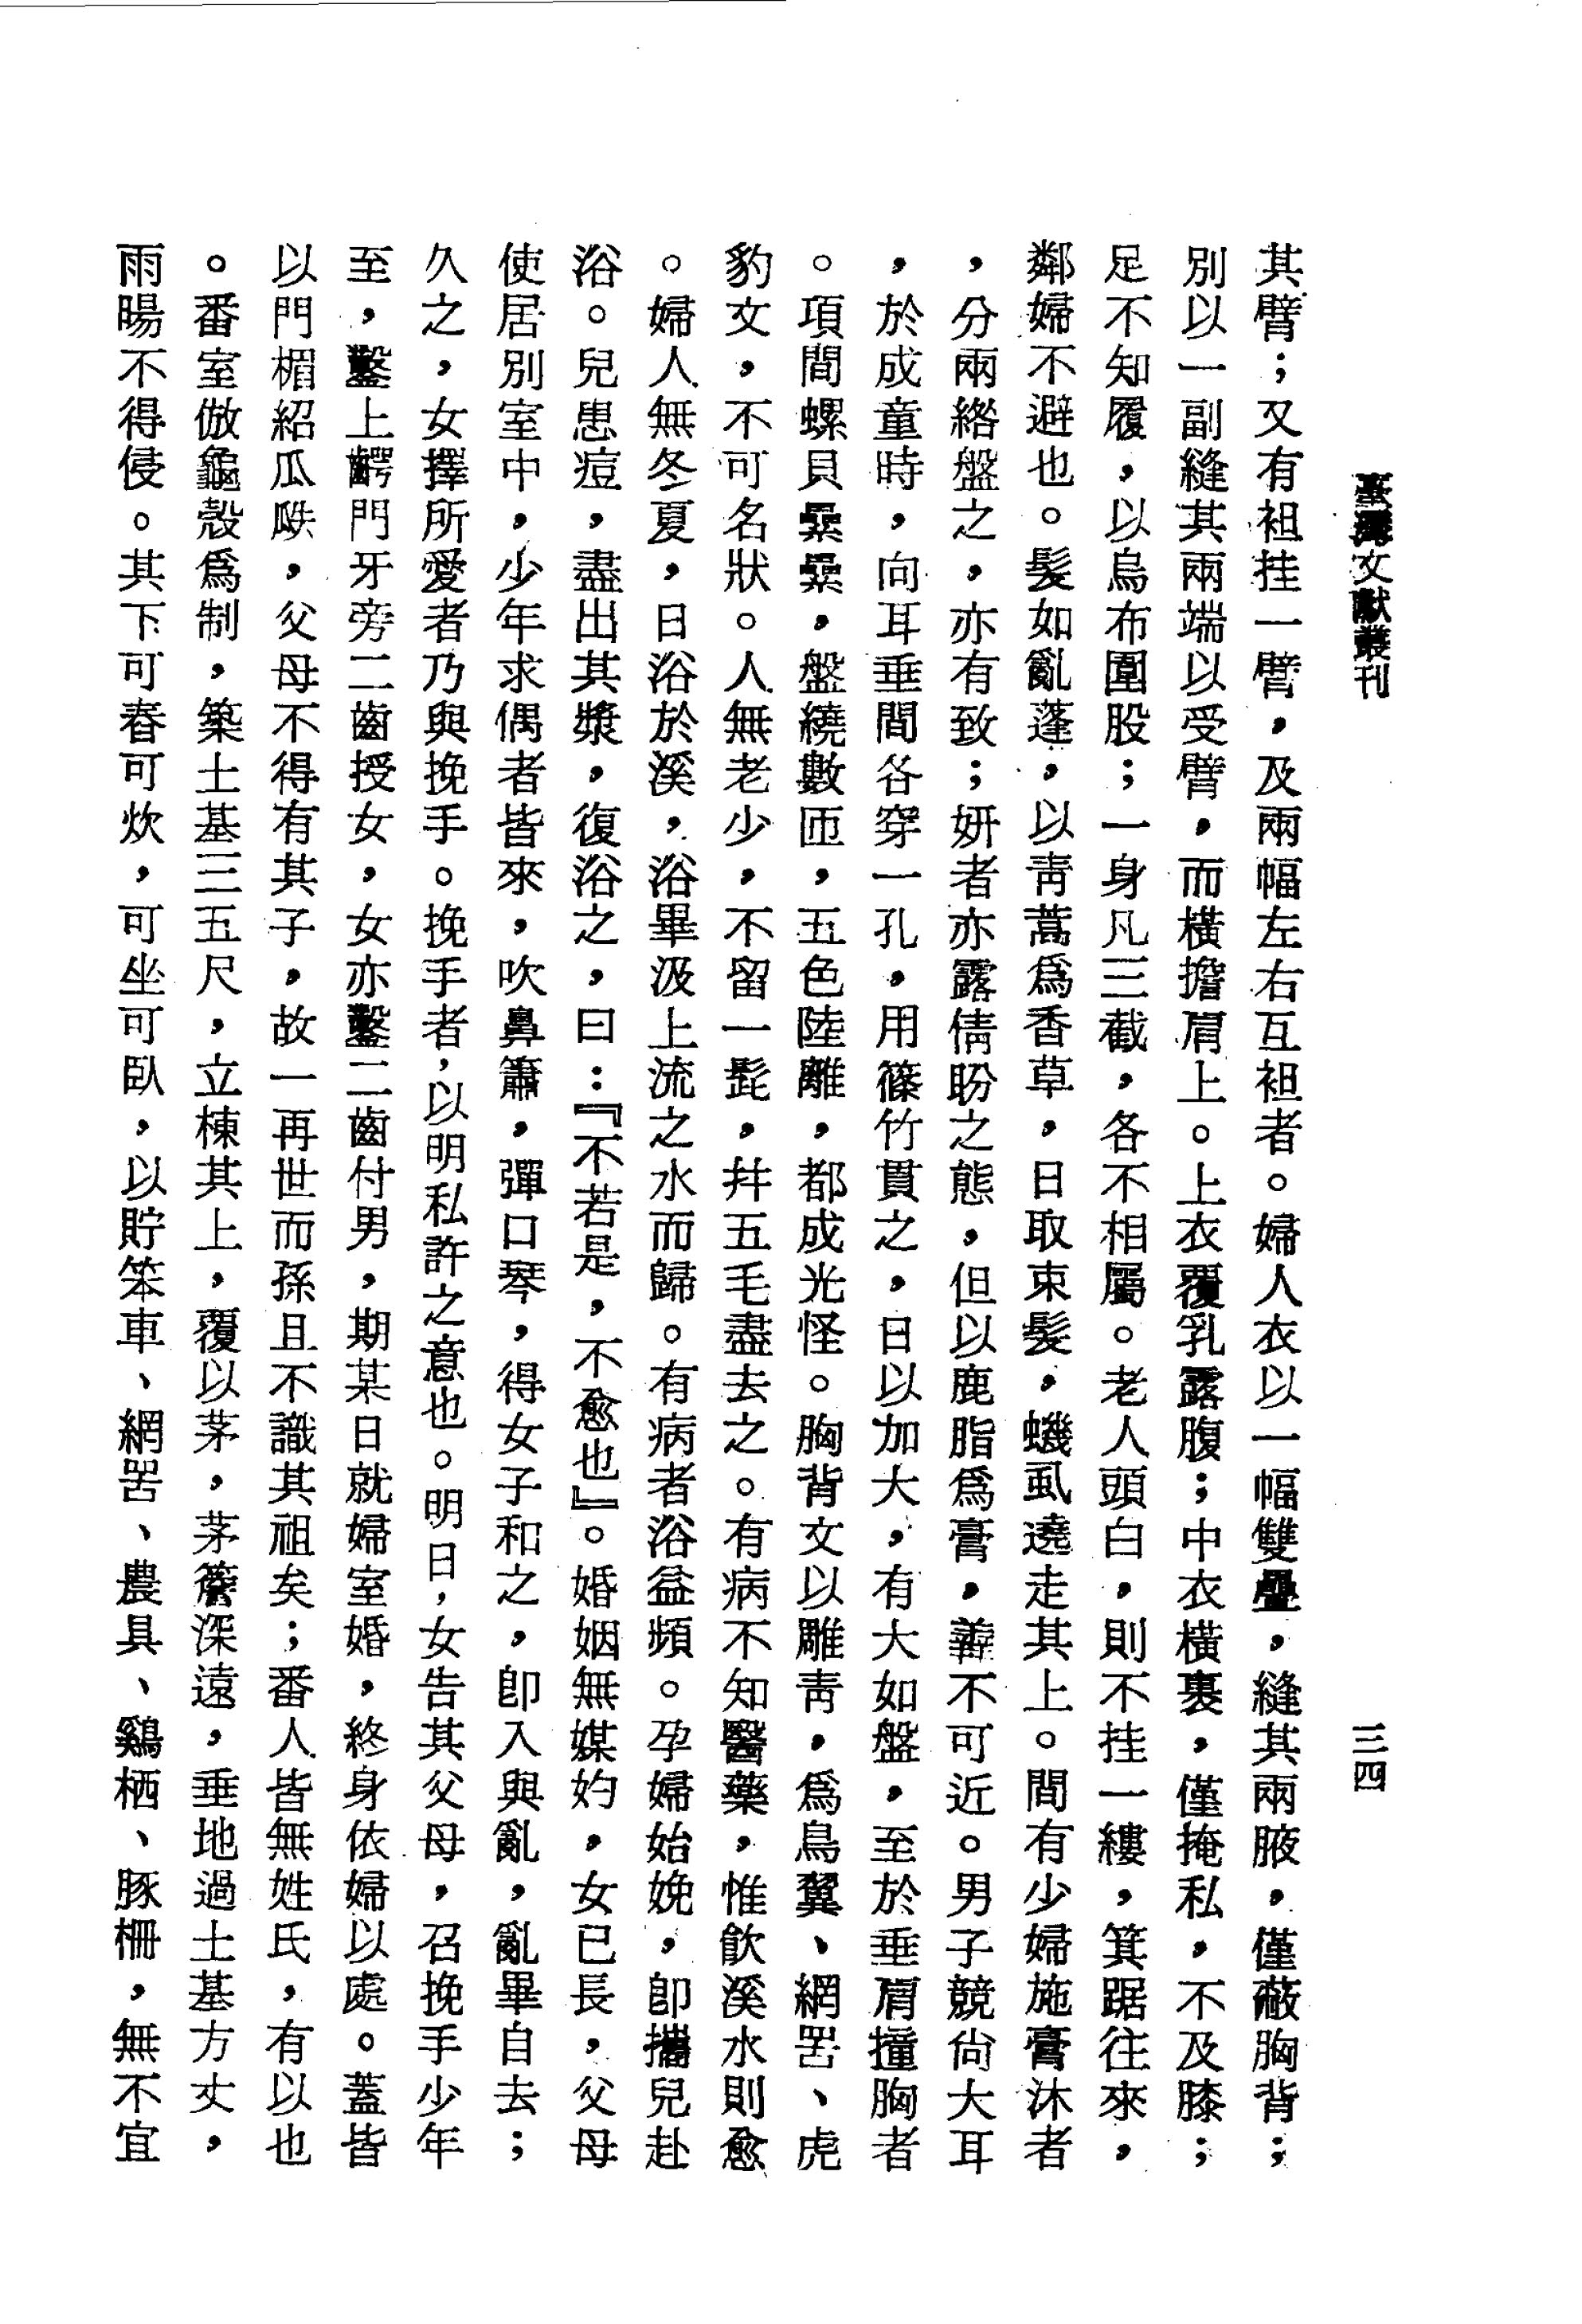 臺灣文獻叢刊
三四
其臂；又有袒挂一臂，及兩幅左右互袒者。婦人衣以一幅雙疊，縫其兩腋，僅蔽胸背；
別以一副縫其兩端以受臂，而橫擔肩上。上衣覆乳露腹；中衣橫裹，僅掩私，不及膝；
足不知履，以烏布圍股；一身凡三截，各不相屬。老人頭白，則不挂一縷，箕踞往來，
鄰婦不避也。髮如亂蓬，以青蒿為香草，日取束髮，蟣虱遶走其上。間有少婦施膏沐者
，分兩綹盤之，亦有致；妍者亦露倩盼之態，但以鹿脂為膏，羶不可近。男子競尚大耳
，於成童時，向耳垂間各穿一孔，用篠竹貫之，日以加大，有大如盤，至於垂肩撞胸者
。項間螺貝纍纍，盤繞數匝，五色陸離，都成光怪。胸背文以雕青，為鳥翼、網罟、虎
豹文，不可名狀。人無老少，不留一髭，幷五毛盡去之。有病不知醫藥，惟飲溪水則愈
。婦人無冬夏，日浴於溪，浴畢汲上流之水而歸。有病者浴益頻。孕婦始娩，卽攜兒赴
浴。兒患痘，盡出其漿，復浴之，曰：『不若是，不愈也』。婚姻無媒妁，女已長，父母
使居別室中，少年求偶者皆來，吹鼻簫，彈口琴，得女子和之，卽入與亂，亂畢自去；
久之，女擇所愛者乃與挽手。挽手者，以明私許之意也。明日，女告其父母，召挽手少年
至，鑿上齶門牙旁二齒授女，女亦鑿二齒付男，期某日就婦室婚，終身依婦以處。蓋皆
以門楣紹瓜瓞，父母不得有其子，故一再世而孫且不識其祖矣；番人皆無姓氏，有以也
。番室倣龜殼為制，築土基三五尺，立棟其上，覆以茅，茅簷深遠，垂地過土基方丈，
雨暘不得侵。其下可舂可炊，可坐可臥，以貯笨車、網罟、農具、鷄栖、豚柵，無不宜